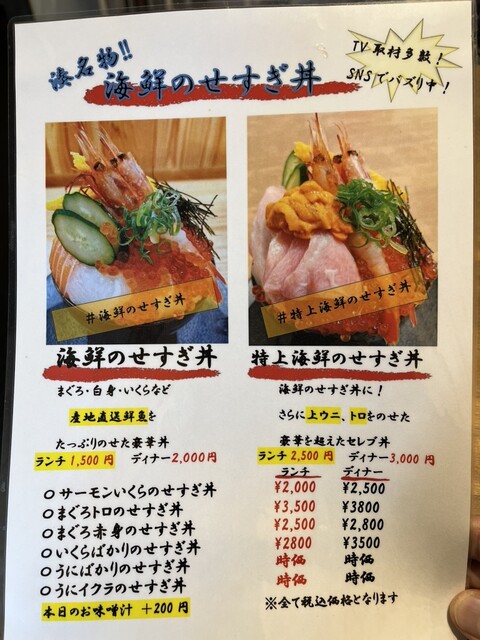 湊名物!!
海鮮のせすぎ丼
TV取材多数!
SNSでバズり中!
#海鮮のせすぎ丼
#特上海鮮のせすぎ丼
海鮮のせすぎ丼
まぐろ・白身・いくらなど
産地直送鮮魚を
たっぷりのせた豪華丼
ランチ1,500円 ディナー2,000円
特上海鮮のせすぎ丼
海鮮のせすぎ丼に!
さらに上ウニ、トロをのせた
豪華を超えたセレブ丼
ランチ2,500円 ディナー3,000円
ランチ ディナー
○サーモンいくらのせすぎ丼 ¥2,000 ¥2,500
○まぐろトロのせすぎ丼 ¥3,500 ¥3800
○まぐろ赤身のせすぎ丼 ¥2,500 ¥2,800
○いくらばかりのせすぎ丼 ¥2800 ¥3500
○うにばかりのせすぎ丼 時価 時価
○うにイクラのせすぎ丼 時価 時価
本日のお味噌汁 +200円
※全て税込価格となります